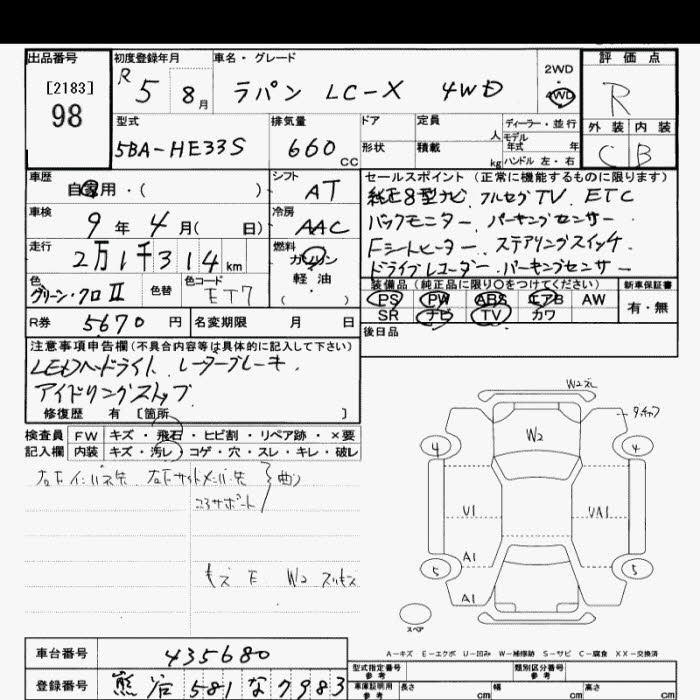 出品番号 初度登録年月 車名・グレード 評価点
[2183] R 5 8月 ラパン LC-X 4WD 2WD 4WD R
98
型式 排気量 ドア 定員 人 ディーラー・並行 外装 内装
5BA-HE33S 660 CC 形状 積載 kg モデル年式 年 ハンドル 左・右 C B
車歴 自家用・( ) シフト AT セールスポイント(正常に機能するものに限ります)
純正8型ナビ フルセグTV ETC
車検 9年 4月( 日) 冷房 AAC バックモニター パーキングセンサー
Fシートヒーター ステアリングスイッチ
走行 2万1千314km 燃料 ガソリン 軽油 ( ) ドライブレコーダー パーキングセンサー
色 グリーン・クロⅡ 色替 色コード ET7 装備品(純正品に限り○をつけてください) 新車保証書
PS PW ABS エアB AW 有・無
R券 5670円 名変期限 月 日 SR ナビ TV カワ
後日品
注意事項申告欄(不具合内容等は具体的に記入して下さい)
LEDヘッドライト レーダーブレーキ
アイドリングストップ
修復歴 有 [箇所 ]
検査員 FW キズ・飛石・ヒビ割・リペア跡・×要
記入欄 内装 キズ・汚レ・コゲ・穴・スレ・キレ・破レ
曲
コアサポート
キズ E W2
W2
W2
4 4
U1 UA1
A1
5 5
A1
スペア
A-キズ E-エクボ U-凹み W-補修跡 S-サビ C-腐食 XX-交換済
車台番号 435680 型式指定番号 参考 類別区分番号 参考
登録番号 熊谷 581 な 7983 車庫証明用 参考 長さ cm 幅 cm 高さ cm